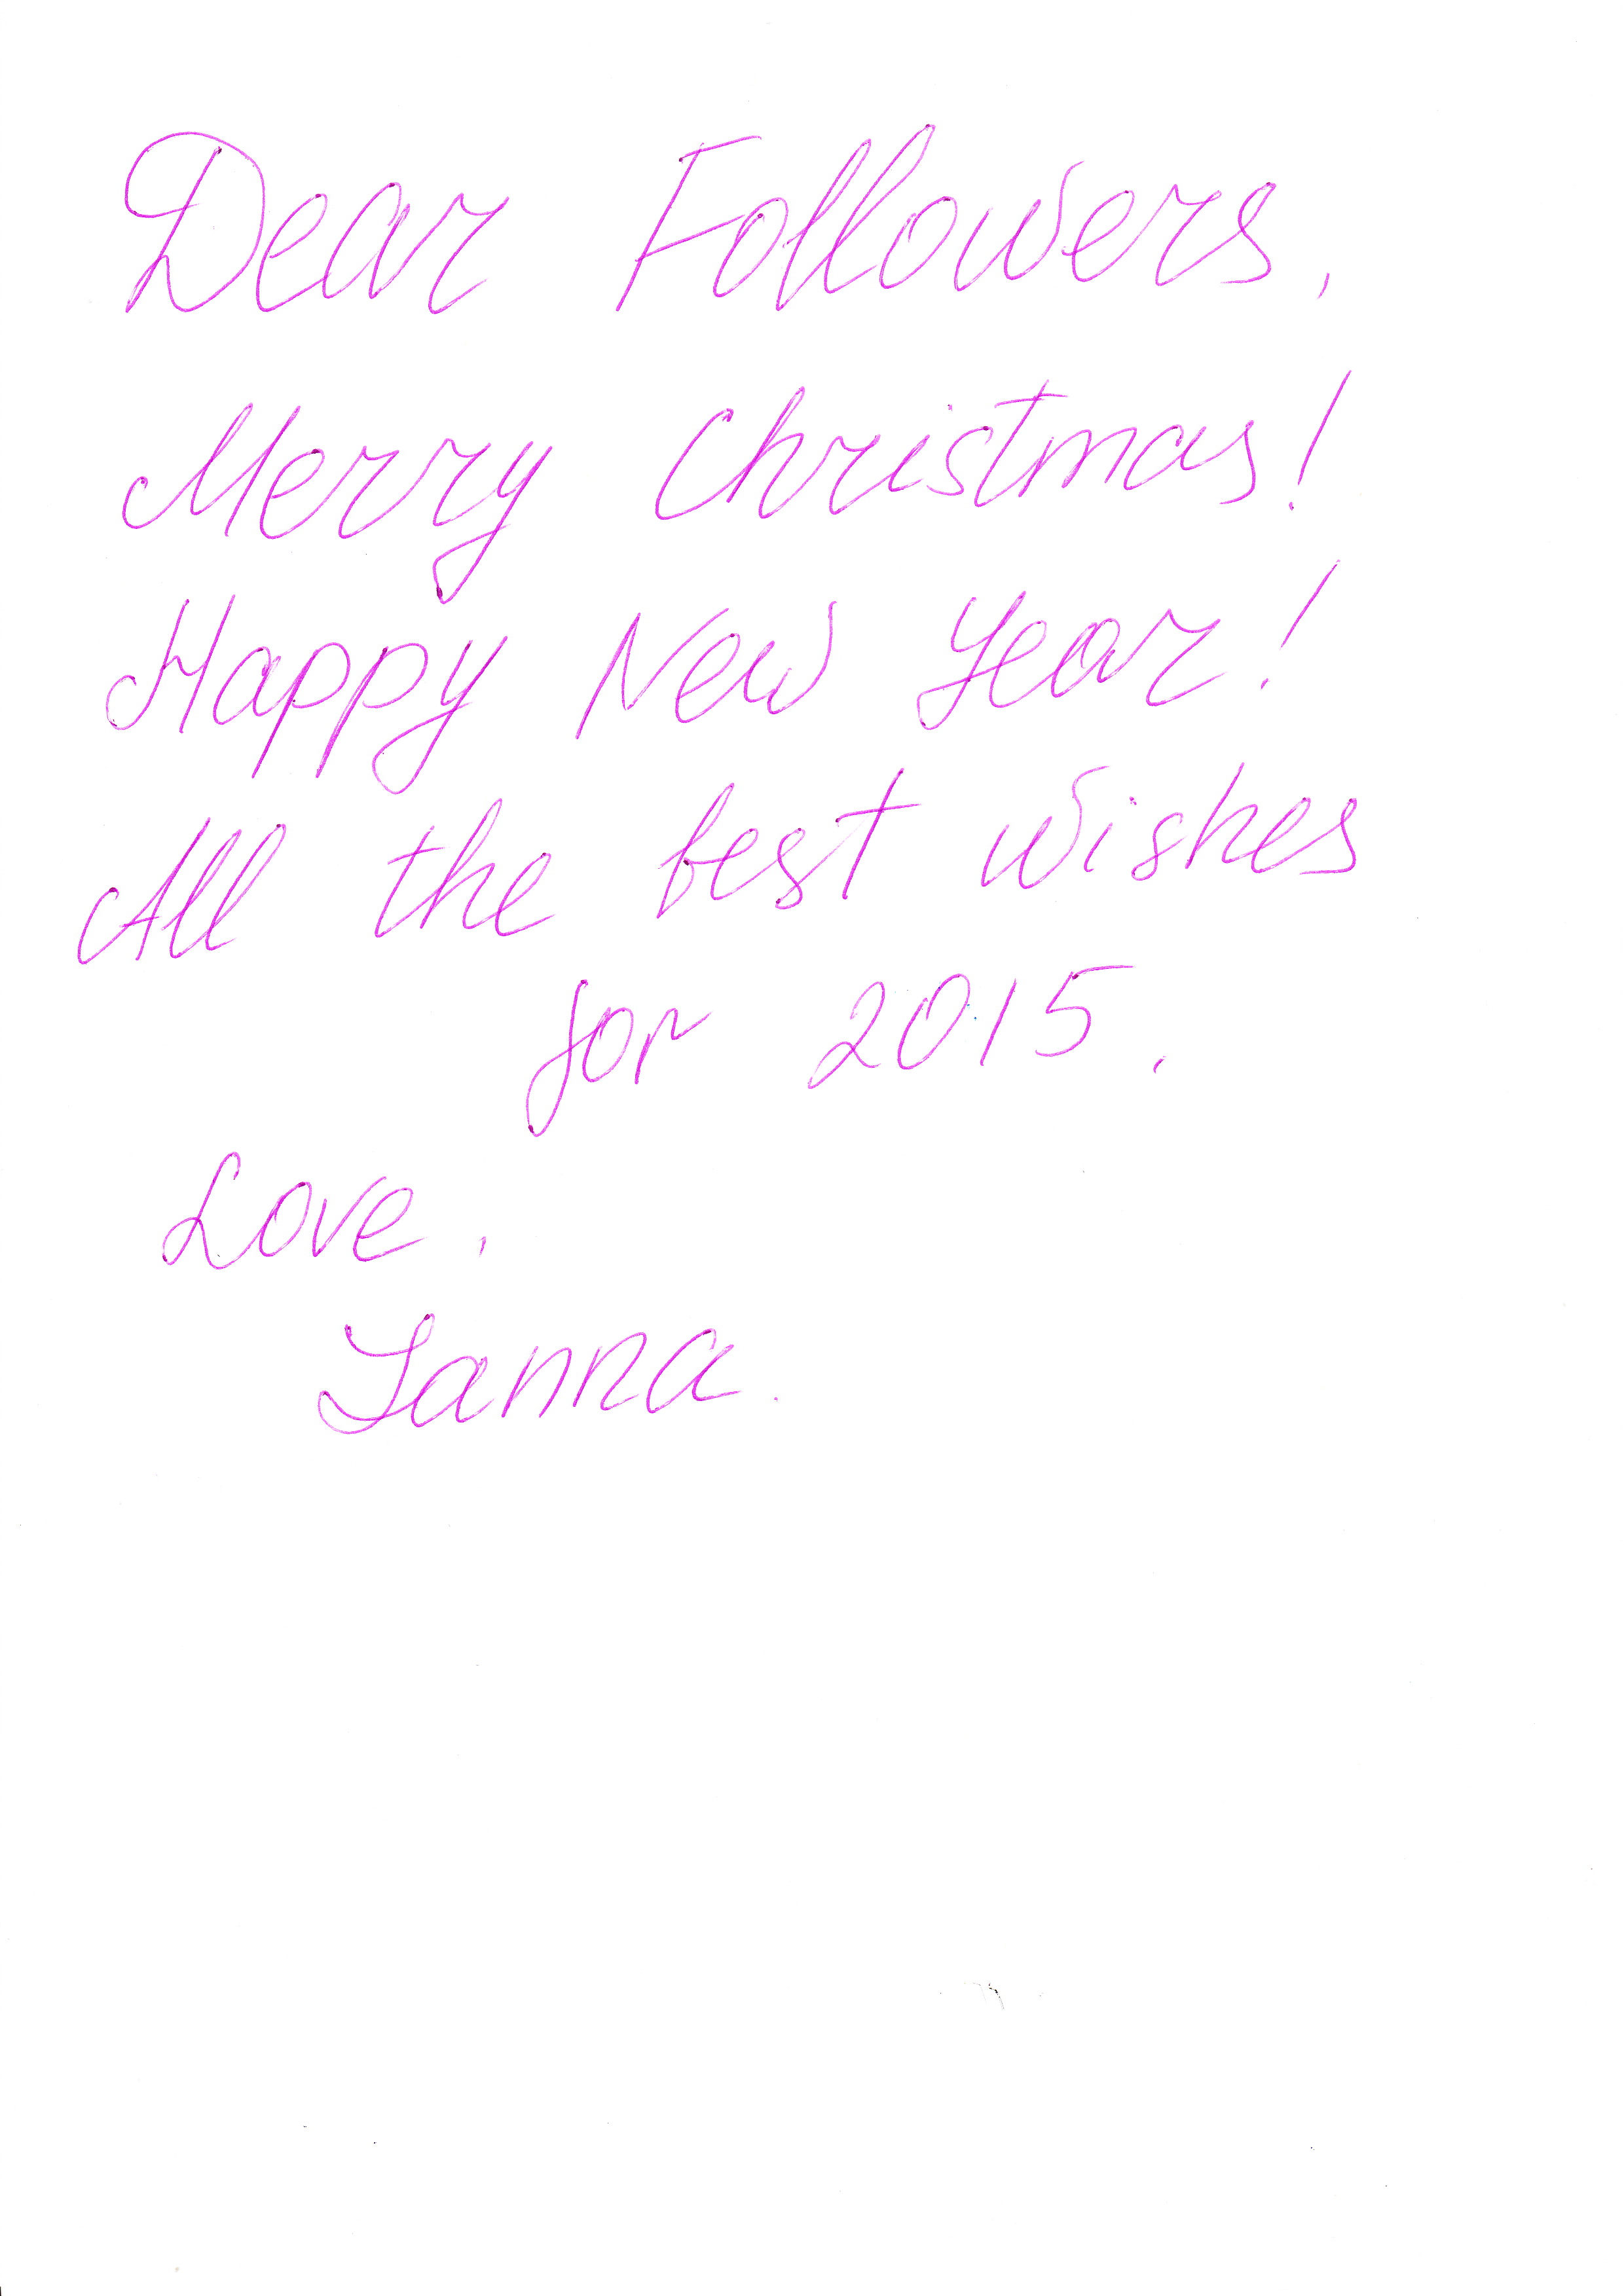 Dear Followers,
Merry Christmas!
Happy New Year!
All the best wishes
for 2015.
Love,
Ianna.